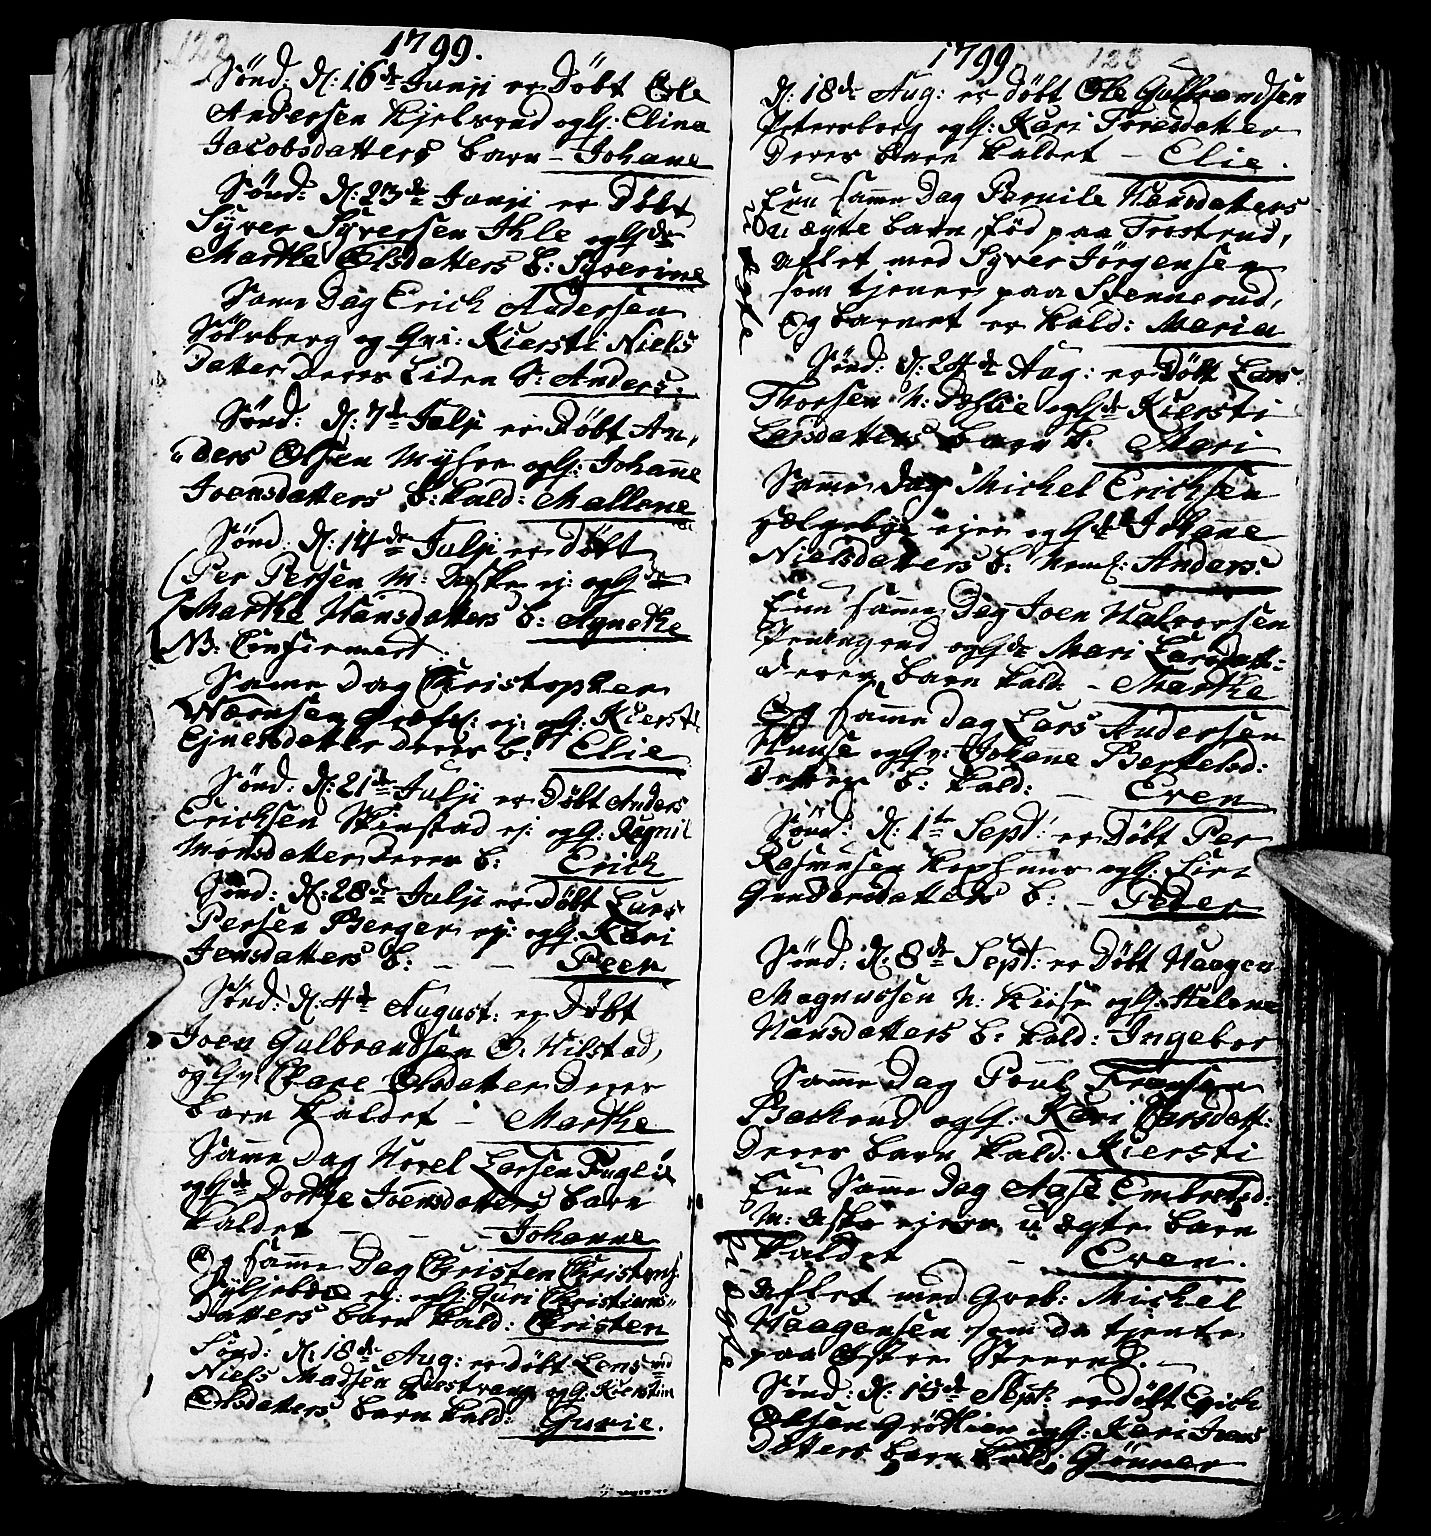 122
1799.
Sønd: d: 16de Junji er Døbt Ole
Andersen Kjelsrud og H: Elina
Jacobsdatters barn - Johane
Sønd: d: 23de Junji er Døbt
Syver Syversen Ihle og Hde
Marthe Olsdatters b: Syverine
Same Dag Erich Andersen
Sølvberg og Qvi: Kiersti Niels
Datter Deres Liden S: Anders:
Sønd: d: 7de Julji er Døbt An,
ders Olsen Myhre og H: Johane
Joensdatters b: kald: Mallene
Sønd: d: 14de Julji er Døbt
Per Persen M: Aske ej: og Hde
Marthe Hansdatters b: Agnethe
NB: Confirmert.
Same Dag Christopher
ej: og H: Kiersti
Ejnersdatter Deres b: Elie
Sønd: d: 21de Julji er Døbt Anders
Erichsen Skinstad ej: og H: Ragnil
Monsdatter Deres b: Erich
Sønd: d: 28de Julji er Døbt Lars
Persen Berger ej: og H: Kari
Jensdatters b: - - Peer
Sønd: d: 4de August: er Døbt
Joen Gulbrandsen Ø: Hilstad,
og Qv: Kare Olsdatter Deres
barn kaldet - Marthe
Samme Dag Hovel Larsen
og Hde Dorthe Joensdatters barn
kaldet - - - Johanne
Og samme Dag Christen Christens
ej: og H: Guri Christians
datters barn kald: Christen
Sønd: d: 18de Aug: er Døbt
Niels Madsen og H: Kierstin
Olsdatters barn kald: Gurie.
123
1799.
d: 18de Aug: er Døbt Ole Gulbrandsen
Petersborg og H: Kari Toresdatter
Deres barn kaldet - Elie.
Enn samme Dag Pernile Hansdatters
U: ægte barn, fød paa Trostrud,
aflet med Syver Jörgensen
som tjener paa Stennerud,
Og barnet er kald: Maria
U ægte
Sønd: d: 24de Aug: er Døbt Lars
Thorsen N: Dohlie og Hde Kiersti
Larsdatters barn k. Mari
Samme Dag Michel Erichsen
Helgeby ejer og Hde Johane
Nielsdatters b: Neml: Anders:
Enn samme Dag Joen Halvorsen
og Hde Mari Larsdatt:
Deres barn kald: - Marthe
Og samme Dag Lars Andersen
og Qv: Johane Bertelsd:
Deres b: kald: - Even
Sønd: d: 1te Sept: er Døbt Per
Rasmusen og H: Siri
Gundersdatters b: - Peder
Sønd: d: 8de Sept: er Døbt Haagen
Magnussen N: Kiise og H: Helene
Hansdatters b: kald: Ingebor
Samme Dag Poul Fransen
Backerud og H: Kari Larsdatt:
Deres barn kald: Kiersti
Enn Samme Dag Aase Embretsd:
M: Aske ejers u ægte barn
kaldet - Even.
Aflet med Greb: Michel
Haagensen som da tjente
paa Østre Steenrud. -
U ægte
Sønd: d: 15de Sept: er Døbt Erich
Olsen Grøthien og H: Kari Ivers
Datters barn kald: Gönner